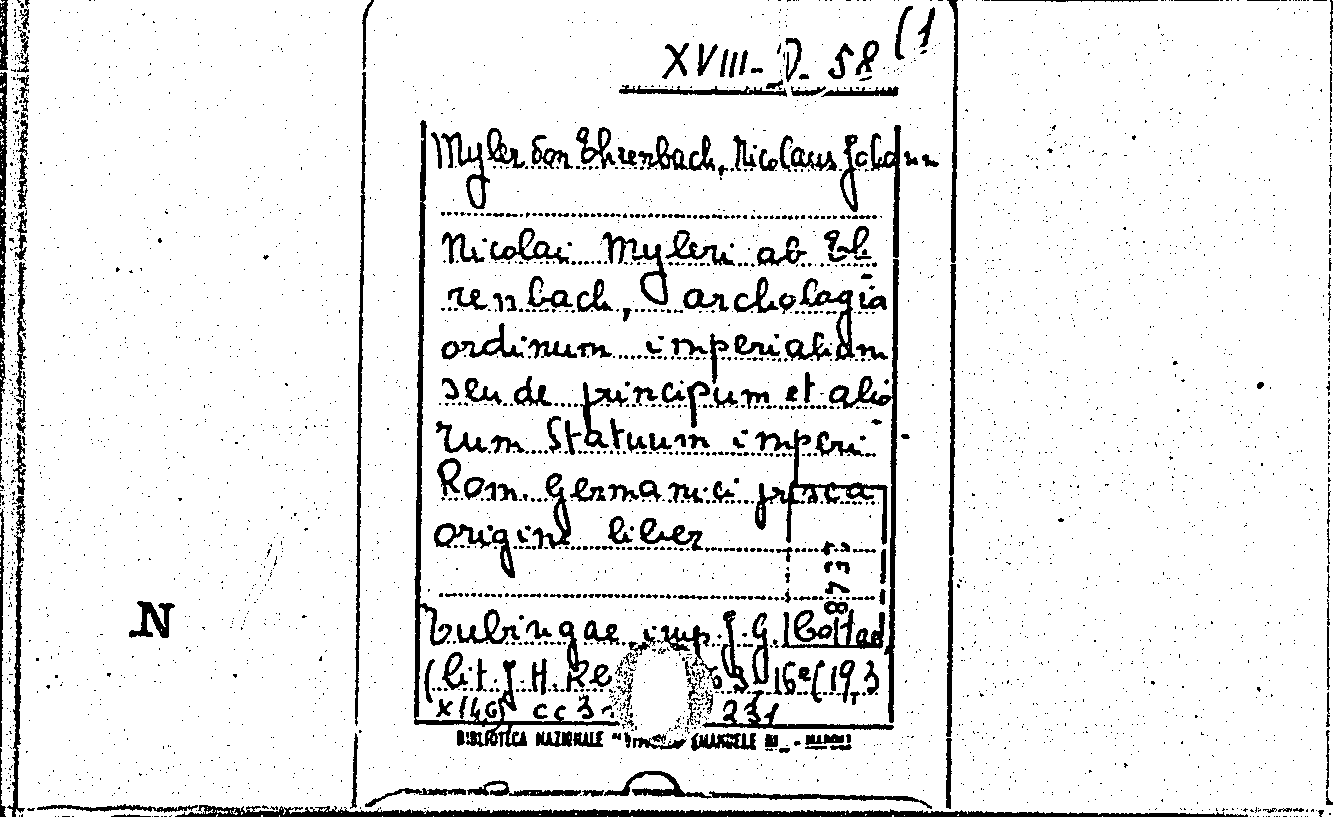 XVIII-D-58 (1
Myler von Ehrenbach, Nicolaus Johann
Nicolai Myleri ab Eh
renbach, archologia
ordinum imperialium
seu de principum et alio
rum Statuum imperi
Rom. Germanici prisca
origine liber
8733
Tubingae, imp. J. G. Cottae
(lit. J. H. Re 3, 16° (19,3
x 14,5) cc 3- 231
BIBLIOTECA NAZIONALE "VITTORIO EMANUELE III" - NAPOLI
N